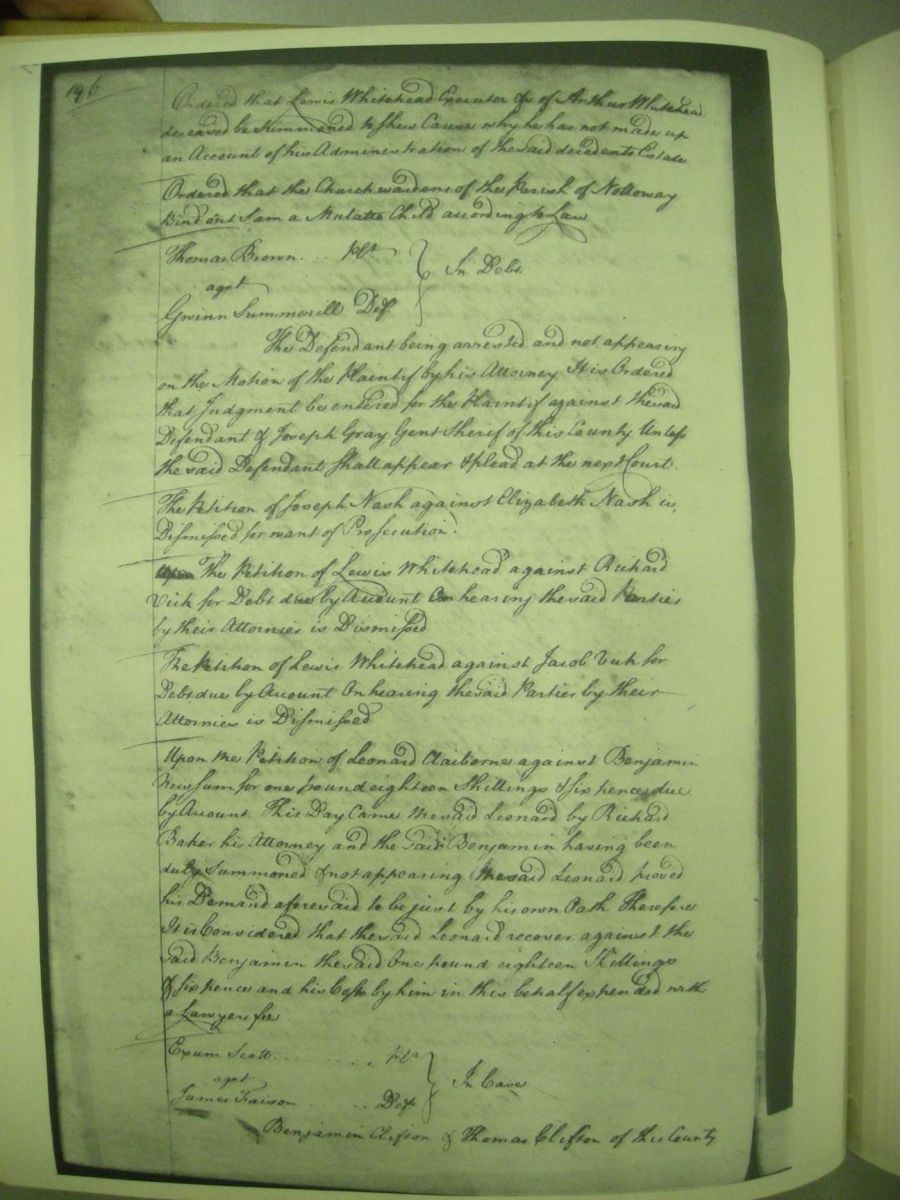 196
Ordered that Lewis Whitehead Executor &c of Arthur Whitehead
deceased be Summoned to Shew Cause why he has not made up
an Account of his Administration of the said decedents Estate
Ordered that the Churchwardens of the Parish of Nottoway
Bind out Sam a Mulatto Child according to Law
Thomas Brown ... Plt
agst
In Debt
Gwinn Summerill Def
The Defendant being arrested and not appearing
on the Motion of the Plaintif by his Attorney It is Ordered
that Judgment be entered for the Plaintif against the said
Defendant & Joseph Gray Gent Sherif of this County Unless
the said Defendant Shall appear & plead at the next Court.
The Petition of Joseph Nash against Elizabeth Nash is
Dismissed for want of Prosecution.
The Petition of Lewis Whitehead against Richard
Vick for Debt due by Account On hearing the said Parties
by their Attornies is Dismissed
The Petition of Lewis Whitehead against Jacob Vick for
Debt due by Account On hearing the said Parties by their
Attornies is Dismissed
Upon the Petition of Leonard Claiborne against Benjamin
Newsum for one pound eighteen Shillings & six pence due
by Account. This Day Came the said Leonard by Richard
Baker his Attorney and the Said Benjamin having been
duly Summoned & not appearing the said Leonard proved
his Demand aforesaid to be just by his own Oath Therefore
It is Considered that the said Leonard recover against the
Said Benjamin the said One pound eighteen Shillings
& six pence and his Costs by him in this behalf expended with
a Lawyers fee
Exum Scott ........ Plt
agst
In Case
James Faison ..... Def
Benjamin Clifton & Thomas Clifton of this County